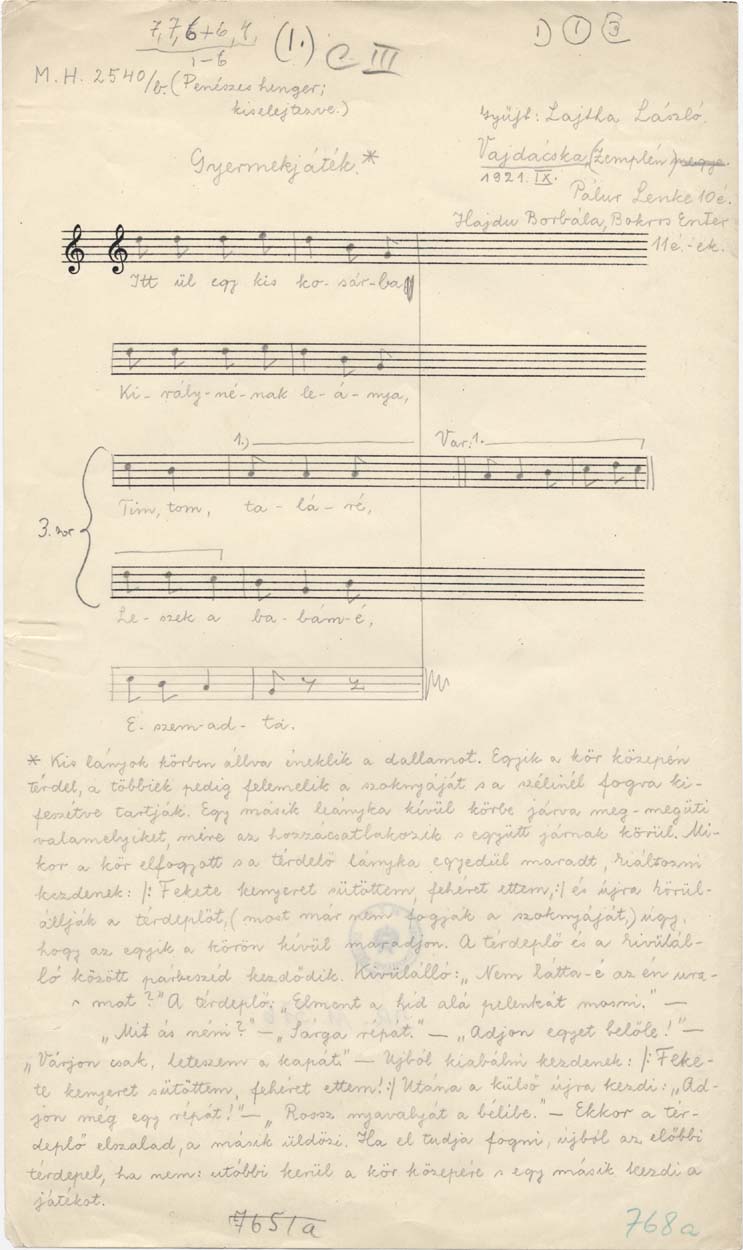 7,7,6+6,4,
1-6
(1.) C. III
1) 1 3
M. H. 2540/b. (Penészes henger;
kiselejtezve.)
Gyűjt: Lajtha László.
Vajdácska, (Zemplén) megye.
1921. IX.
Gyermekjáték.*
Pálur Lenke 10 é.
Hajdu Borbála, Bokros Eszter
11 é.-ek.
Itt ül egy kis ko-sár-ba,
Ki-rály-né-nak le-á-nya,
1.) Var. 1.
Tim, tom, ta-lá-ré,
3. sor
Le-szek a ba-bám-é,
E-szem-ad-ta.
* Kis lányok körben állva éneklik a dallamot. Egyik a kör közepén
térdel, a többiek pedig felemelik a szoknyáját s a szélinél fogva ki-
feszítve tartják. Egy másik leányka kívül körbe járva meg-megüti
valamelyiket, mire az hozzácsatlakozik s együtt járnak körül. Mi-
kor a kör elfogyott s a térdelő lányka egyedül maradt, kiáltozni
kezdenek: |: Fekete kenyeret sütöttem, fehéret ettem,:| és újra körül-
állják a térdeplőt, (most már nem fogják a szoknyáját,) úgy,
hogy az egyik a körön kívül maradjon. A térdeplő és a kívülál-
ló között párbeszéd kezdődik. Kívülálló: „Nem látta-é az én ura-
mat?" A térdeplő: „Elment a híd alá pelenkát mosni." —
„Mit ás néni?" — „Sárga répát." — „Adjon egyet belőle!" —
„Várjon csak, leteszem a kapát." — Ujból kiabálni kezdenek: |: Feke-
te kenyeret sütöttem, fehéret ettem!:| Utána a külső újra kezdi: „Ad-
jon még egy répát!" — „Rossz nyavalyját a bélibe." — Ekkor a tér-
deplő elszalad, a másik üldözi. Ha el tudja fogni, újból az előbbi
térdepel, ha nem: utóbbi kerül a kör közepére s egy másik kezdi a
játékot.
7651a
768a